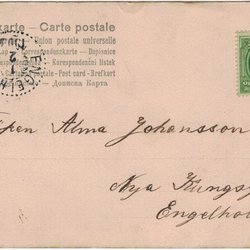 karte – Carte postale
Union postale universelle
Correspondenzkarte – Dopisnice
Korespondenční lístek
Post-Card – Brefkort
Дописна Карта
ENGELH
Alma Johansson
Nya Kungsg
Engelho